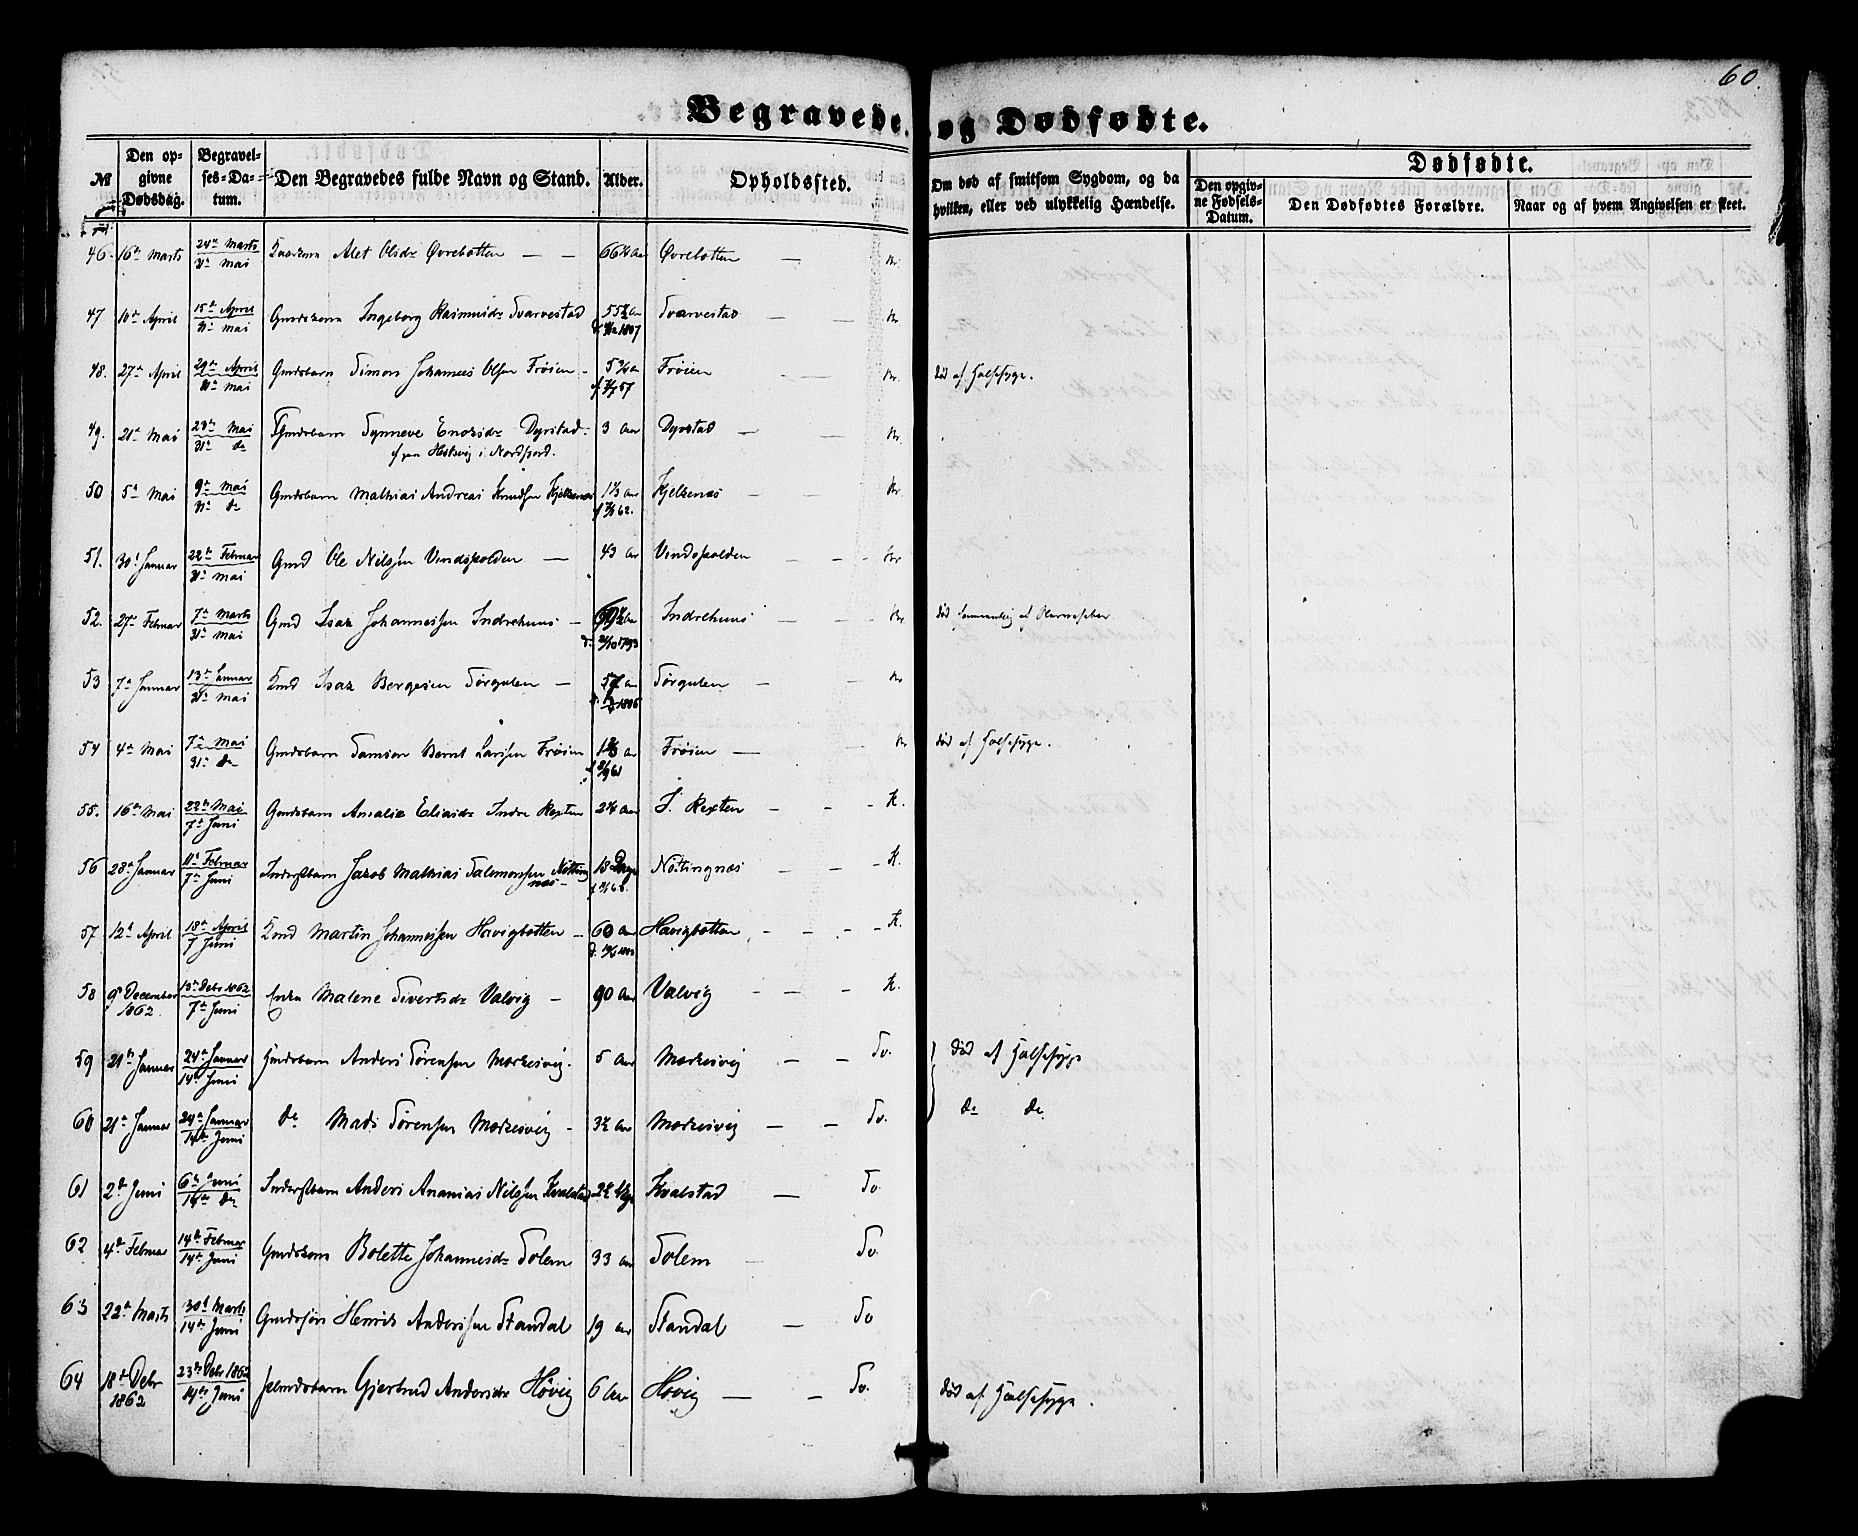 60.
Begravede og Dødfødte.
№ Den opgivne Dødsdag. Begravelses-Datum. Den Begravedes fulde Navn og Stand. Alder. Opholdssted. Om død af smitsom Sygdom, og da hvilken, eller ved ulykkelig Hændelse. Dødfødte. Den opgivne Fødsels-Datum. Den Dødfødtes Forældre. Naar og af hvem Angivelsen er skeet.
46. 16de Marts 24de Marts / 31te Mai Alet Olsdr Øvrebotten — — 66 Aar Øvrebotten — Br.
47 10de April 15de April / 31te Mai Gmdskone Ingeborg Rasmusdr Svarvestad 55 Aar 1807 Svarvestad — — Br
48. 27de April 29de April / 31te Mai Gmdsbarn Simon Johannes Olsen Frøien - 5 Aar f 57 Frøien Br. død af Halssyge.
49. 21de Mai 23de Mai / 31te do Gmdsbarn Synneve Enoksdr Dyrstad - 3 Aar Dyrstad — — Br
fra i Nordfjord.
50 5te Mai 9de Mai / 31te do Gmdsbarn Mathias Andreas Knudsen Kjelkenes 1 Aar f 62. Kjelkenes — — Br
51. 30te Januar 22de Februar / 31te Mai Gmd Ole Nilssen Vindspolden — 43 Aar Vindspolden - - - Br
52. 27de Februar 7de Marts / 31te Mai Gmd Isak Johannessen Indrehuus - 69 Aar 1793 Indrehuus — — Br død
53 7de Januar 13de Januar / 31te Mai Isak Børgesen Sørgulen — 57 Aar 1806 Sørgulen — — Br
54 4de Mai 7de Mai / 31te do Gmdsbarn Samson Bernt Larssen Frøien 1 Aar f 61 Frøien — — Br død af Halssyge.
55. 16de Mai 22de Mai / 7de Juni Gmdsbarn Amalie Eliasdr Indre Rexten 2 Aar I. Rexten - - - K.
56 28de Januar 11te Februar / 7de Juni Inderstbarn Jacob Mathias Salomonsen Nøttingnæs — 18 Dage Nøttingnæs — — K.
57 12te April 18de April / 7 Juni Martin Johannessen Havigbotten — 60 Aar Havigbotten - - - - K.
58 9de December 1862. 13de Debr 1862 / 7de Juni Enke Malene Sivertsdr Valvig — 90 Aar Valvig - — - K.
59 21de Januar 24de Januar / 14de Juni Gmdsbarn Anders Sørensen Mørkesvig. 5 Aar Mørkesvig — — Sv. død af Halssyge
60 21de Januar 24de Januar / 14de Juni do Mads Sørensen Mørkesvig - 3½ Aar Mørkesvig — — Sv. do do.
61 2de Juni 6te Juni / 14de do Inderstbarn Anders Ananias Nilssen Kvalstad 2½ Kvalstad — Sv.
62 4de Februar 14de Februar / 14de Juni Gmdskone Bolette Johannesdr Solem 33 Aar Solem — Sv.
63 22de Marts 30te Marts / 14de Juni Gmdssøn Henrik Anderssen Standal 19 Aar Standal — Sv
64 18de Debr 1862 23de Debr 1862 / 14de Juni Gmdsbarn Gjertrud Andersdr Høvig 6 Aar Høvig — — Sv. død af Halssyge.
8